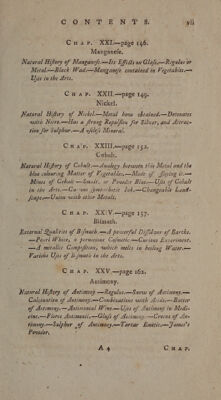 CONTENTS. vii
CHAP. XXI.—page 146.
Manganese.
Natural History of Manganese.—Its Effects on Glass.—Regulus or
Metal.—Black Wad.—Manganese contained in Vegetables.—
Uses in the Arts.
CHAP. XXII.—page 149.
Nickel.
Natural History of Nickel.—Metal how obtained.—Detonates
with Nitre.—Has a strong Repulsion for Silver, and Attrac-
tion for Sulphur.—A useless Mineral.
CHAP. XXIII.—page 152.
Cobalt.
Natural History of Cobalt.—Analogy between this Metal and the
blue colouring Matter of Vegetables.—Mode of
Mines of Cobalt.—Smalt, or Powder Blue.—Uses of Cobalt
in the Arts.—Curious sympathetic Ink.—Changeable Land-
scape.—Union with other Metals.
CHAP. XXIV.—page 157.
Bismuth.
External Qualities of Bismuth.—A powerful Dissolver of Earths.
—Pearl White, a pernicious Cosmetic.—Curious Experiment.
—A metallic Composition, which melts in boiling Water.—
Various Uses of Bismuth in the Arts.
CHAP. XXV.—page 162.
Antimony.
Natural History of Antimony.—Regulus.—Snow of Antimony.—
Calcination of Antimony.—Combinations with Acids.—Butter
of Antimony.—Antimonial Wine.—Uses of Antimony in Medi-
cine.—Flores Antimonii.—Glass of Antimony.—Crocus of An-
timony.—Sulphur of Antimony.—Tartar Emetic.—James's
Powder.
A 4 CHAP.